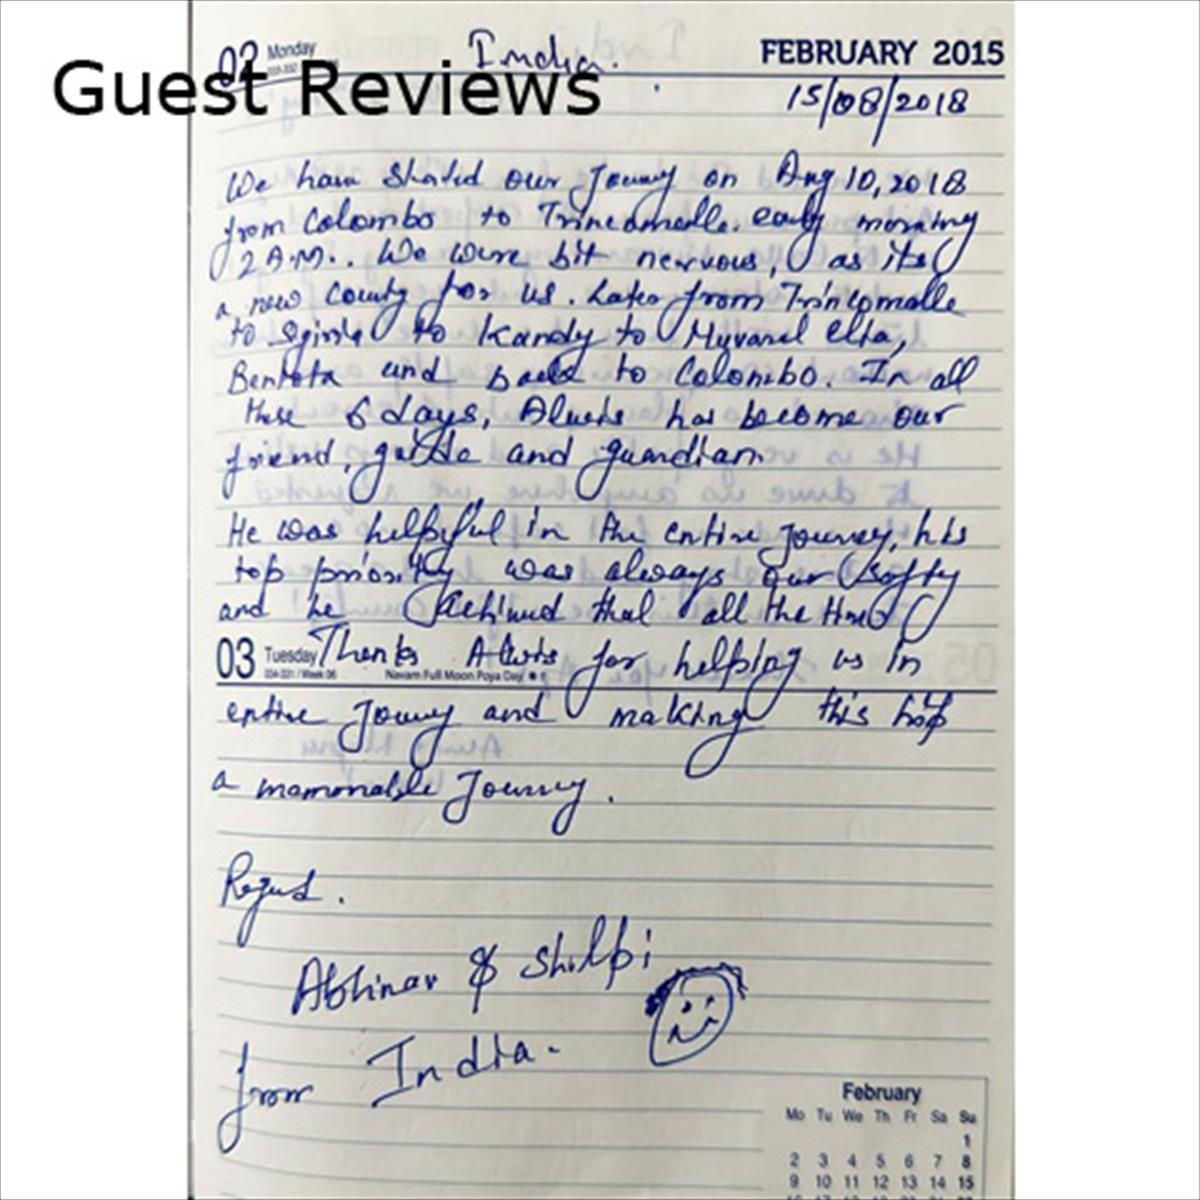 02 Monday India. FEBRUARY 2015
Guest Reviews
15/08/2018
We have started our Journey on Aug 10, 2018
from Colombo to Trincomalle. early morning
2 A.M.. We were bit nervous, as its
a new County for us. Later from Trincomalle
to to Kandy to Ella,
Bentota and back to Colombo. In all
these 6 days, Alwis has become our
friend, guide and guardian
He was helpful in the entire Journey, his
top priority was always our safty
and he achived that all the time
Thanks Alwis for helping us in
03 Tuesday
034-331 / Week 06 Navam Full Moon Poya Day
entire Jouney and making this trip
a memorable Journey.
Regard.
Abhinav & Shilpi
from India.
February
Mo Tu We Th Fr Sa Su
1
2 3 4 5 6 7 8
9 10 11 12 13 14 15